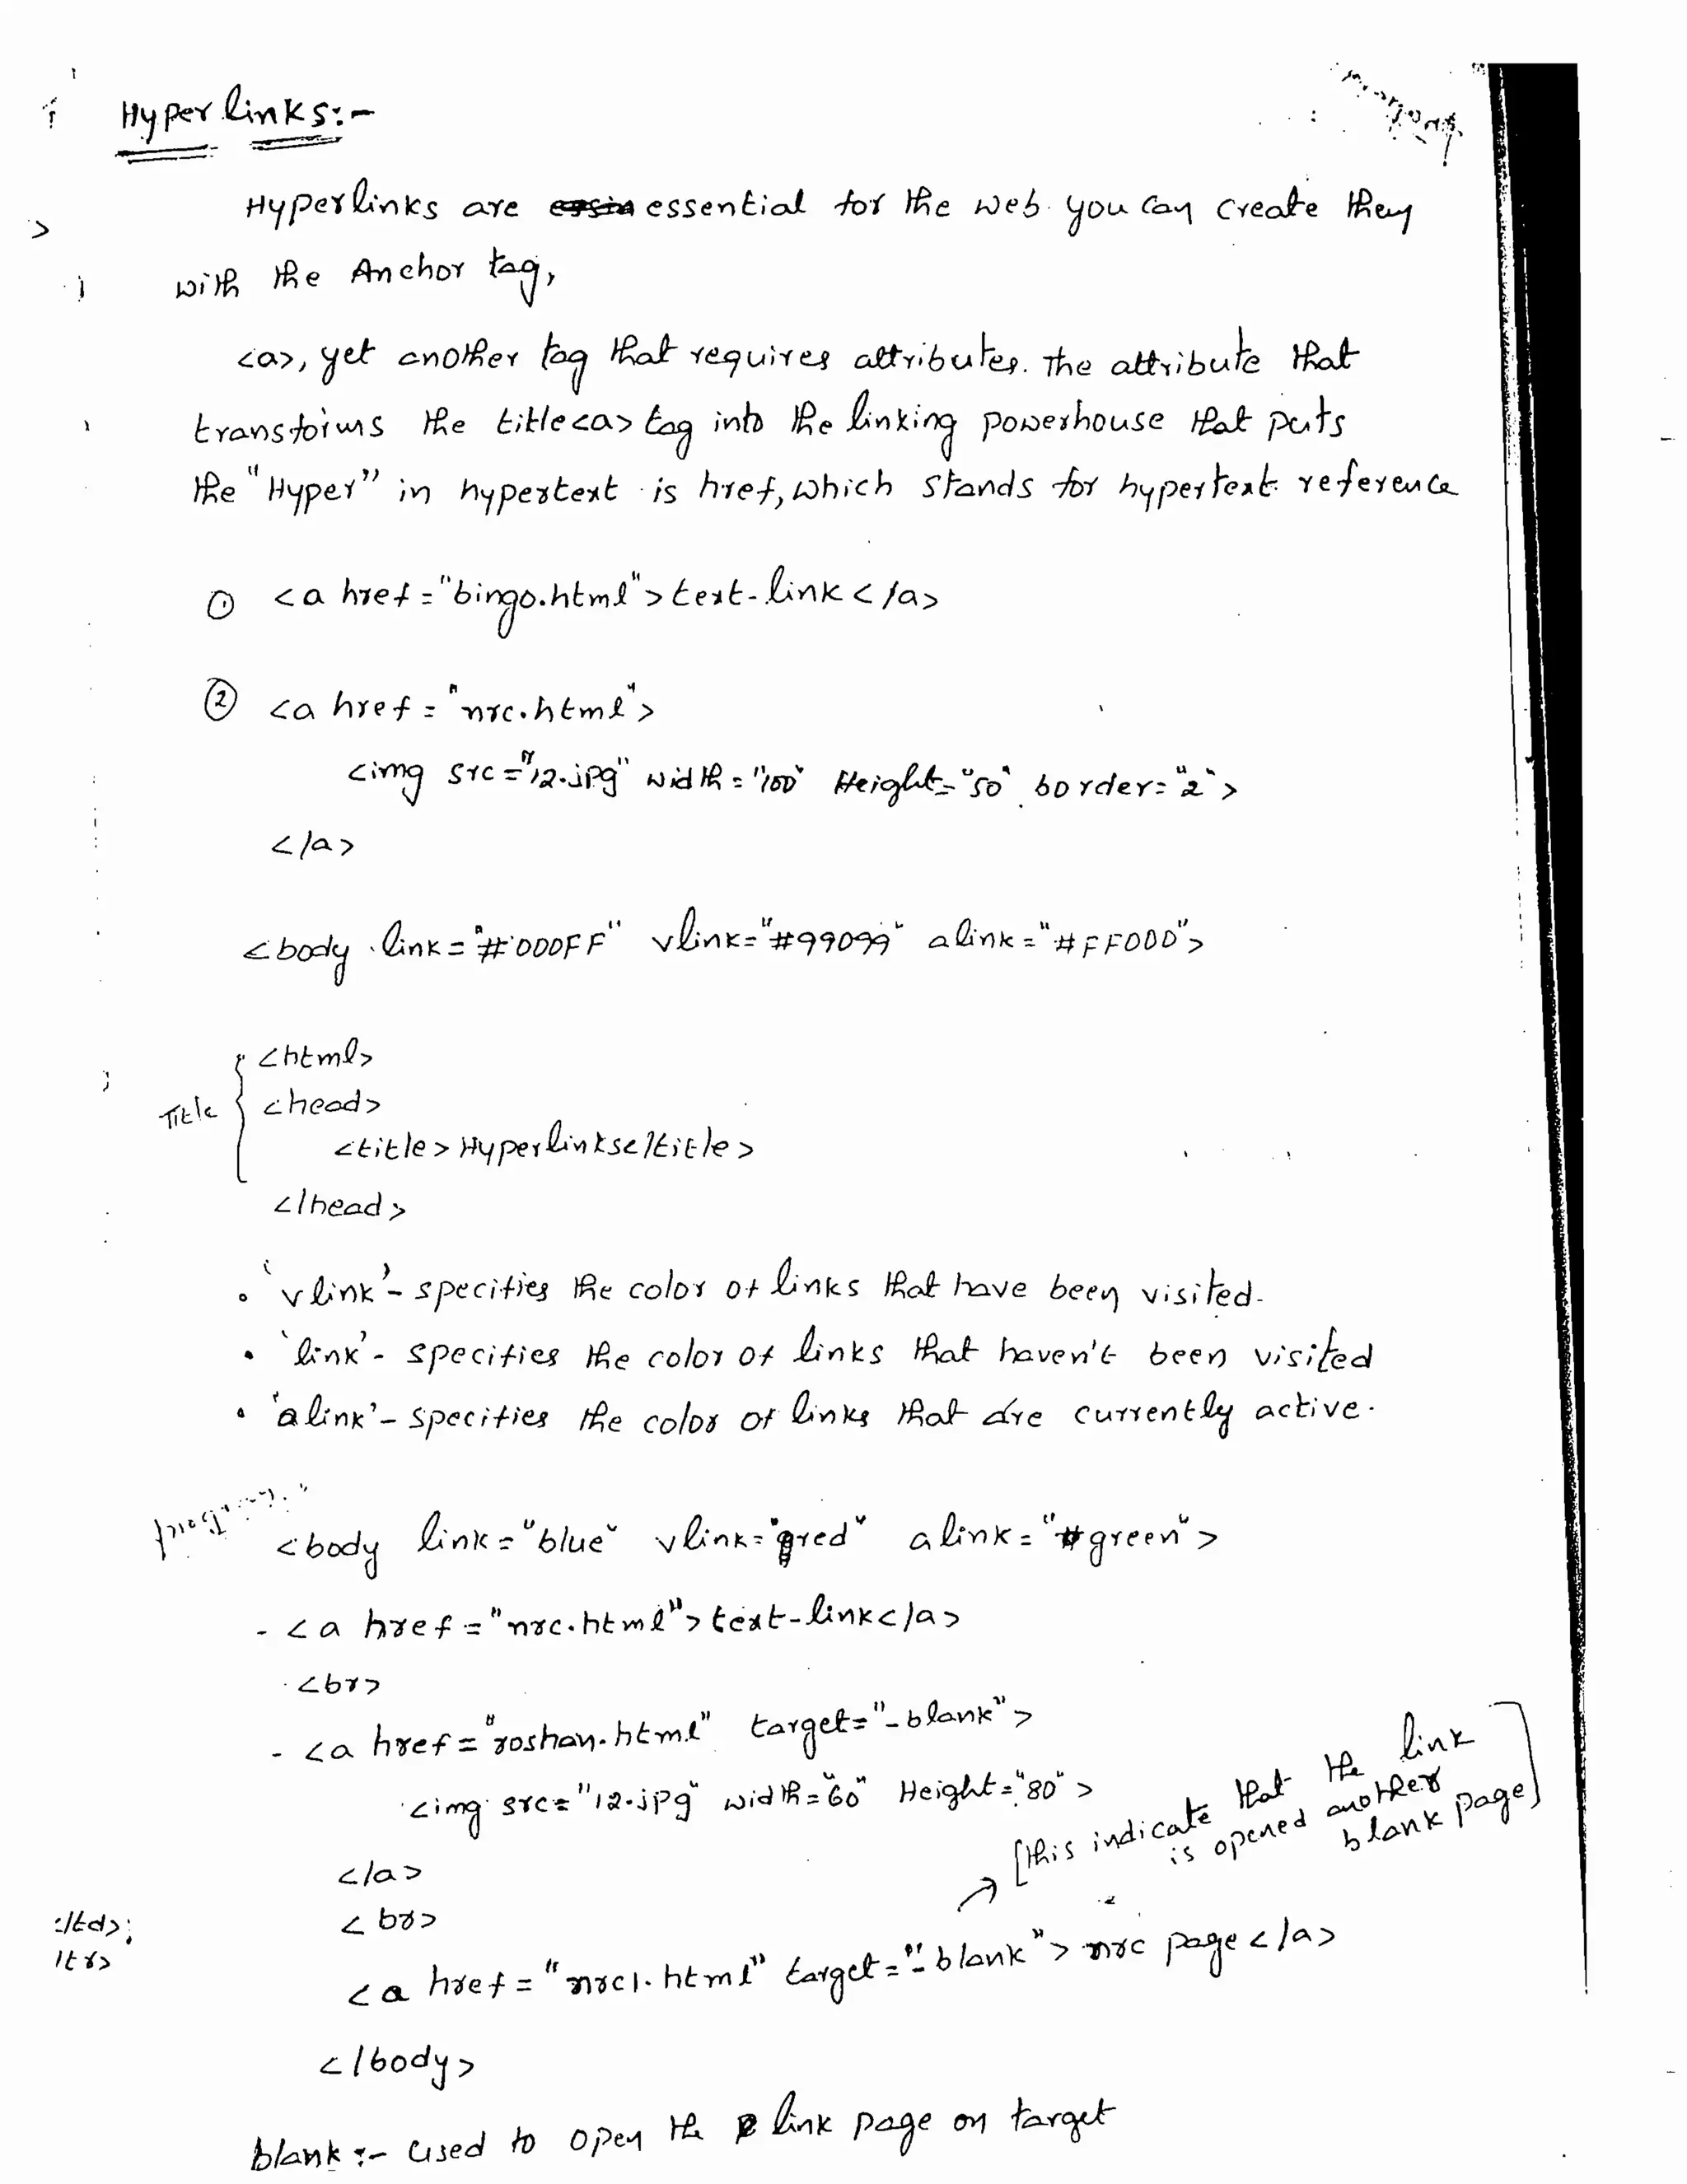 Hyperlinks:-
Hyperlinks are essential for the web. you can create them
with the Anchor tag,
<a>, yet another tag that requires attributes. The attribute that
transforms the title<a> tag into the linking powerhouse that puts
the "Hyper" in hypertext is href, which stands for hypertext reference
① <a href="bingo.html">text-link</a>
② <a href="nrc.html">
<img src="12.jpg" width="100" Height="50" border="2">
</a>
<body link="#000FF" vlink="#99099" alink="#FF000">
<html>
Title { <head>
<title>Hyperlinks</title>
</head>
• 'vlink'- specifies the color of links that have been visited.
• 'link'- specifies the color of links that haven't been visited
• 'alink'- specifies the color of links that are currently active.
<body link="blue" vlink="red" alink="green">
- <a href="nrc.html">text-link</a>
<br>
- <a href="roshan.html" target="_blank">
<img src="12.jpg" width="60" Height="80">
[this indicate that the link
is opened another
blank page]
</a>
</td>; 
/tr>
<a href="nrc1.html" target="_blank">nrc page</a>
</body>
blank:- used to open the link page on target